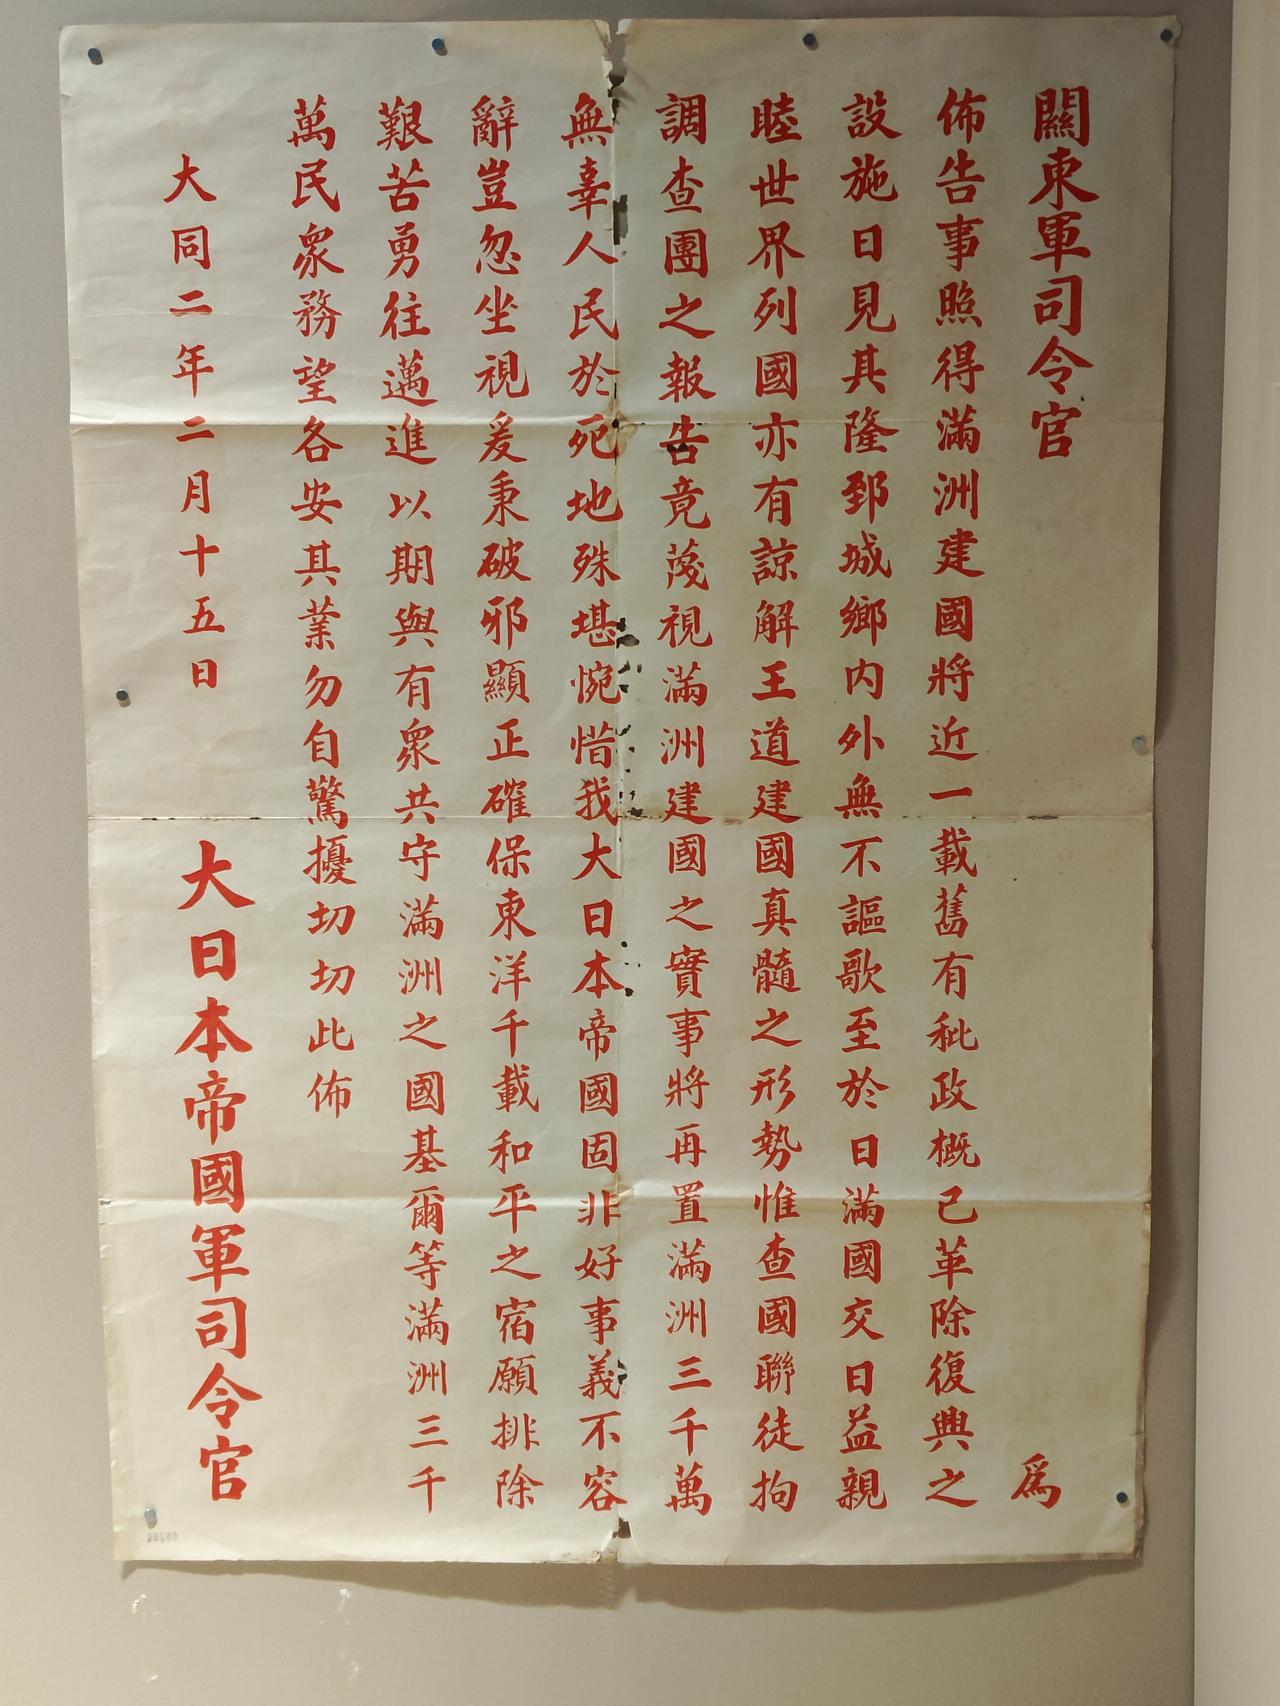 關東軍司令官 爲
佈告事照得滿洲建國將近一載舊有秕政概已革除復興之
設施日見其隆郅城鄉内外無不謳歌至於日滿國交日益親
睦世界列國亦有諒解王道建國真髓之形勢惟查國聯徒拘
調查團之報告竟蔑視滿洲建國之實事將再置滿洲三千萬
無辜人民於死地殊堪惋惜我大日本帝國固非好事義不容
辭豈忽坐視爰秉破邪顯正確保東洋千載和平之宿願排除
艱苦勇往邁進以期與有衆共守滿洲之國基爾等滿洲三千
萬民衆務望各安其業勿自驚擾切切此佈
大同二年二月十五日
大日本帝國軍司令官